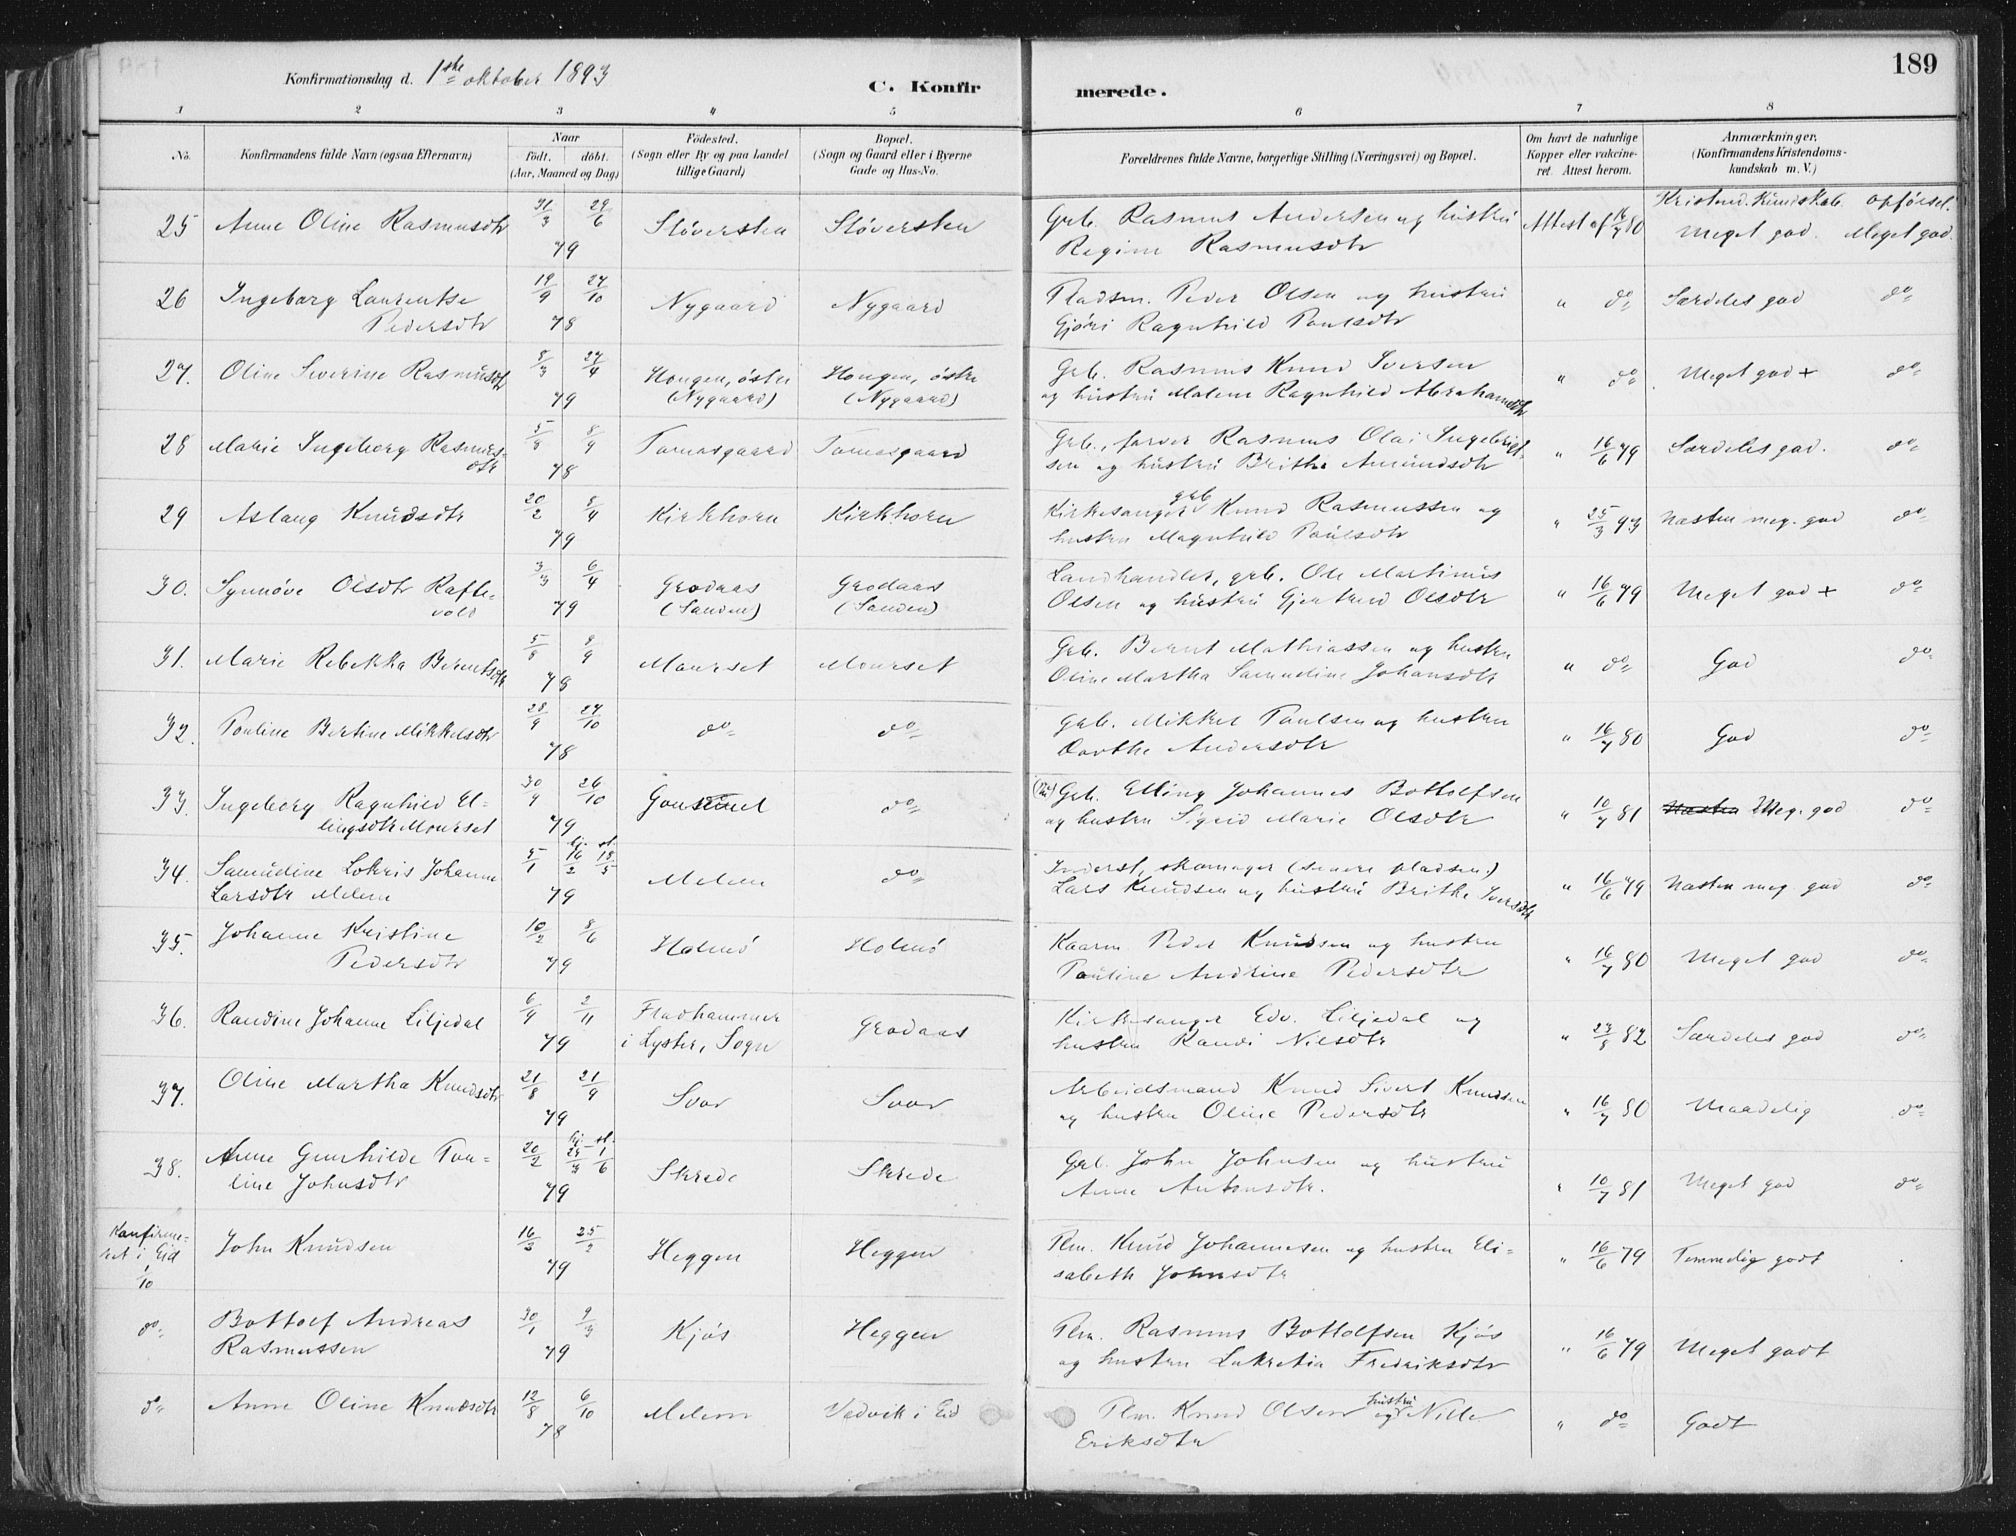 189
Konfirmationsdag d. 1ste oktober 1893
C. Konfirmerede.
1 2 3 4 5 6 7 8
No.
Konfirmandens fulde Navn (ogsaa Efternavn)
Naar
födt. döbt.
(Aar, Maaned og Dag)
Födested.
(Sogn eller By og paa Landet
tillige Gaard)
Bopæl.
(Sogn og Gaard eller i Byerne
Gade og Hus-No.
Forældrenes fulde Navne, borgerlige Stilling (Næringsvei) og Bopæl.
Om havt de naturlige
Kopper eller vakcine-
ret. Attest herom.
Anmærkninger.
(Konfirmandens Kristendoms-
kundskab m. V.)
Kristend. Kundskab. Opførsel.
25 Anne Oline Rasmusdtr 31/3 29/6 79 Støversten Støversten Grb. Rasmus Andersen og hustru
Regine Rasmusdtr Attest af 16/7 80 Meget god. Meget god.
26 Ingeborg Laurentse
Pedersdtr 19/9 27/10 78 Nygaard Nygaard Pladsm. Peder Olsen og hustru
Gjøri Ragnhild Paulsdtr " do Særdeles god do
27. Oline Severine Rasmusdtr 8/3 27/4 79 Hougen, østre
(Nygaard) Hougen, østre
(Nygaard) Grb. Rasmus Knud Iversen
og hustru Malene Ragnhild Abrahamsdtr " do Meget god + do
28 Marie Ingeborg Rasmus-
dtr 5/8 8/9 78 Tomasgaard Tomasgaard Grb., farver Rasmus Olai Ingebrigt-
sen og hustru Brithe Amundsdtr " 16/6 79 Særdeles god. do
29 Aslaug Knudsdtr 20/2 8/4 79 Kirkhorn Kirkhorn Kirkesanger grb Knud Rasmussen og
hustru Magnhild Paulsdtr " 25/3 93 Næsten meg. god do
30. Synnøve Olsdtr Rafte-
vold 3/3 6/4 79 Grodaas
(Sanden) Grodaas
(Sanden) Landhandler, grb. Ole Martinus
Olsen og hustru Gjertrud Olsdtr " 16/6 79 Meget god + do
31. Marie Rebekka Berentsdtr 5/8 8/9 78 Maurset Mourset Grb. Bernt Mathiassen og hustru
Oline Martha Samudine Johansdtr " do God do
32. Pouline Bertine Mikkelsdtr 28/9 27/10 78 do do Grb. Mikkel Paulsen og hustru
Dorthe Andersdtr " 16/7 80 God do
33. Ingeborg Ragnhild El-
lingsdtr Mourset 30/9 26/10 79 do Grb. Elling Johannes Bottolfsen
og hustru Sigrid Marie Olsdtr " 10/7 81 Næsten Meg. god do
34. Samudine Lokris Johanne
Larsdtr Melem 5/1 hj. 16/2 st. 18/5 79 Melem do Inderst, skomager (senere pladsm.)
Lars Knudsen og hustru Brithe Iversdtr " 16/6 79 Næsten meg. god do
35. Johanne Kristine
Pedersdtr 10/2 8/6 79 Holmø Holmø Kaarm. Peder Knudsen og hustru
Pauline Andrine Pedersdtr " 16/7 80 Meget god do
36. Randine Johanne Liljedal 6/9 2/11 79 Fladhammer
i Lyster, Sogn Grodaas Kirkesanger Edv. Liljedal og
hustru Randi Nilsdtr " 23/8 82 Særdeles god do
37. Oline Martha Knudsdtr 21/8 21/9 79 Svor Svor Arbeidsmand Knud Sivert Knudsen
og hustru Oline Pedersdtr " 16/7 80 Maadelig do
38. Anne Gunhilde Pau-
line Johnsdtr 20/2 hj. 23/3 st. 1/6 79 Skrede Skrede Grb. John Johnsen og hustru
Anne Antonsdtr. " 10/7 81 Meget god do
Konfirme-
ret i Eid
1/10 John Knudsen 16/2 25/2 79 Heggen Heggen Plm. Knud Johannesen og hustru Eli-
sabeth Johnsdtr " 16/6 79 Temmelig godt
do Bottolf Andreas
Rasmussen 30/1 9/3 79 Kjøs Heggen Plm. Rasmus Bottolfsen Kjøs
og hustru Lukretia Fredriksdtr " 16/6 79 Meget godt
do Anne Oline Knudsdtr 12/8 6/10 78 Melem Vedvik i Eid Plm. Knud Olsen og hustru Nille
Eriksdtr " do Godt